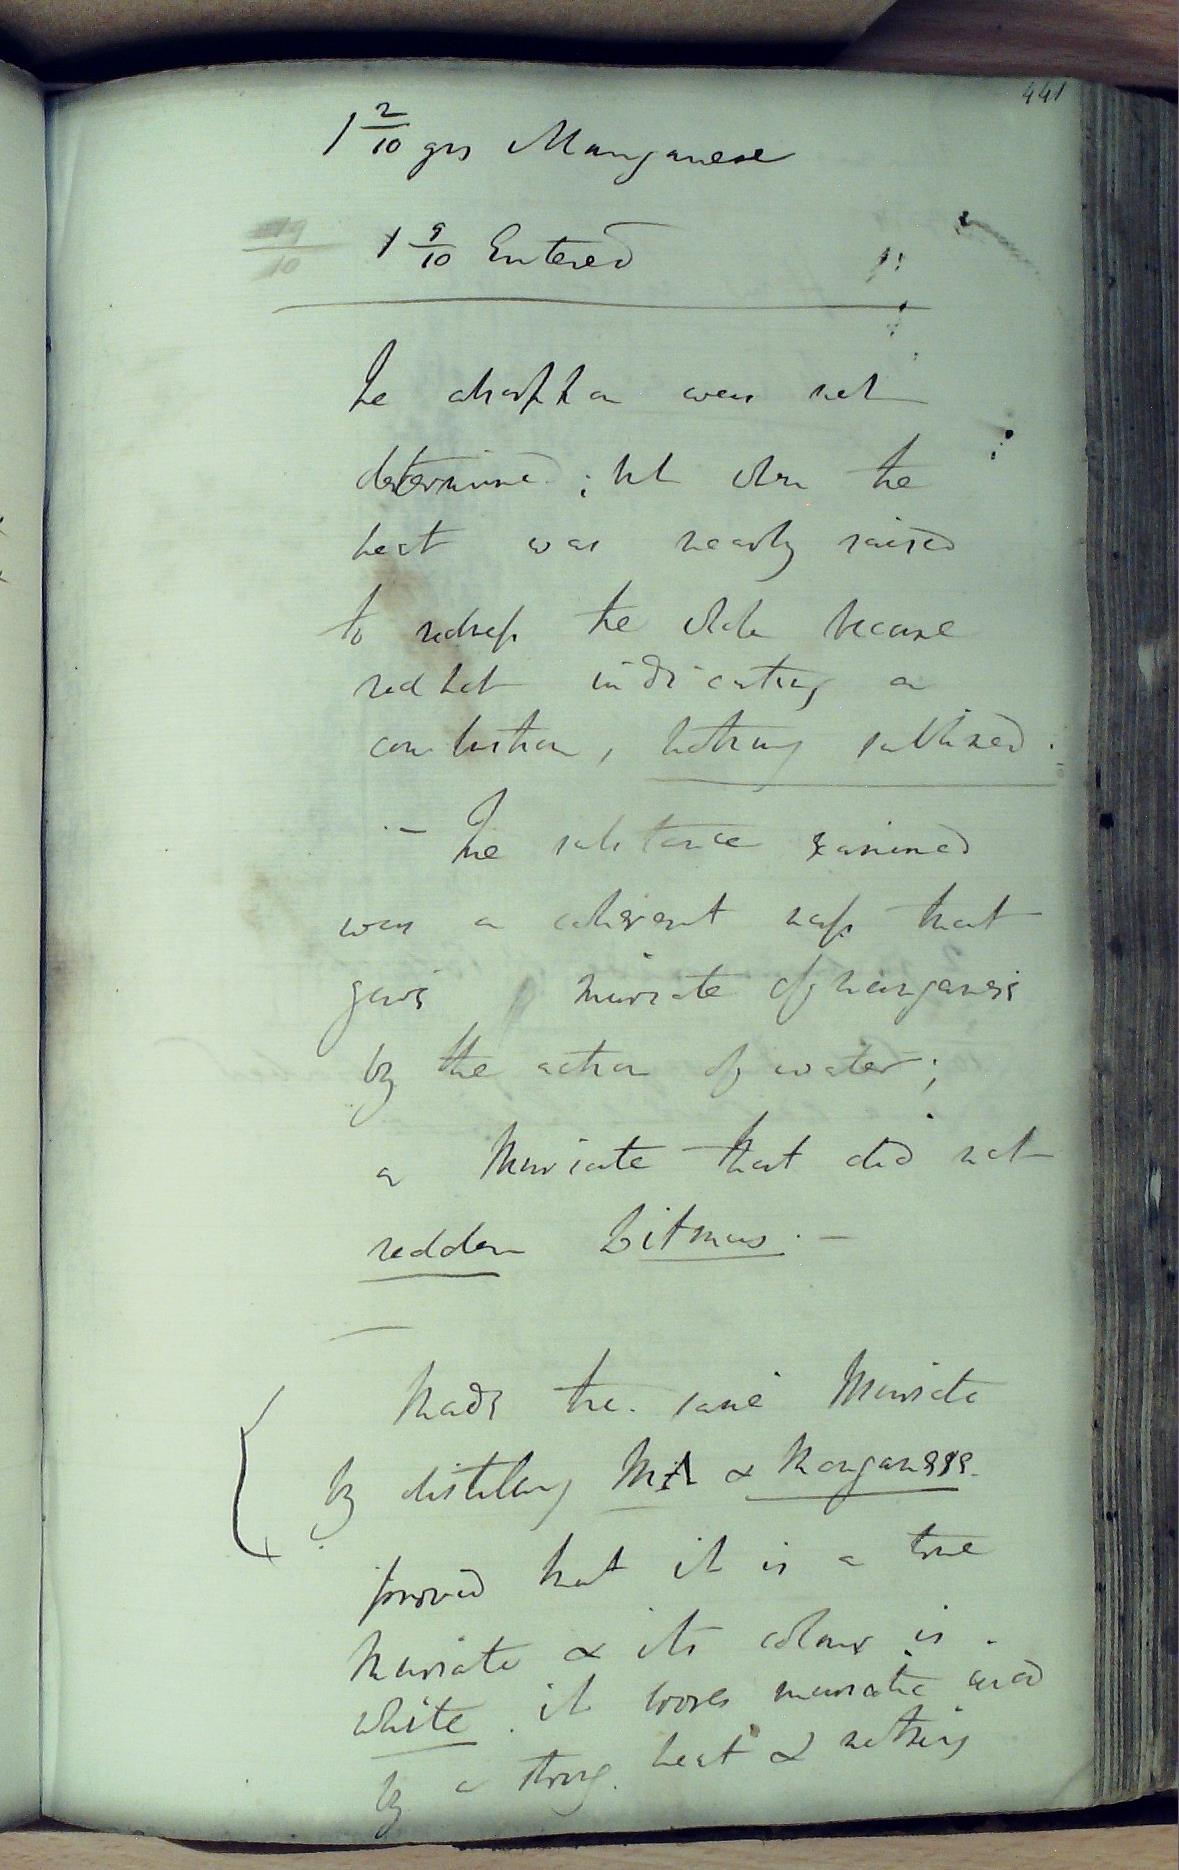 441
1 2/10 grs Manganese
19/10 1 9/10 Entered
The absorption was not
determined; but when the
heat was nearly raised
to redness the whole became
red hot indicating a
combustion, nothing sublimed.
- The substance examined
was a coherent mass that
gave muriate of manganese
by the action of water;
a Muriate that did not
redden Litmus. -
Made the same Muriate
by distilling MA & Manganese.
proved that it is a true
Muriate & its colour is
white. it looses muriatic acid
by a strong heat & nothing